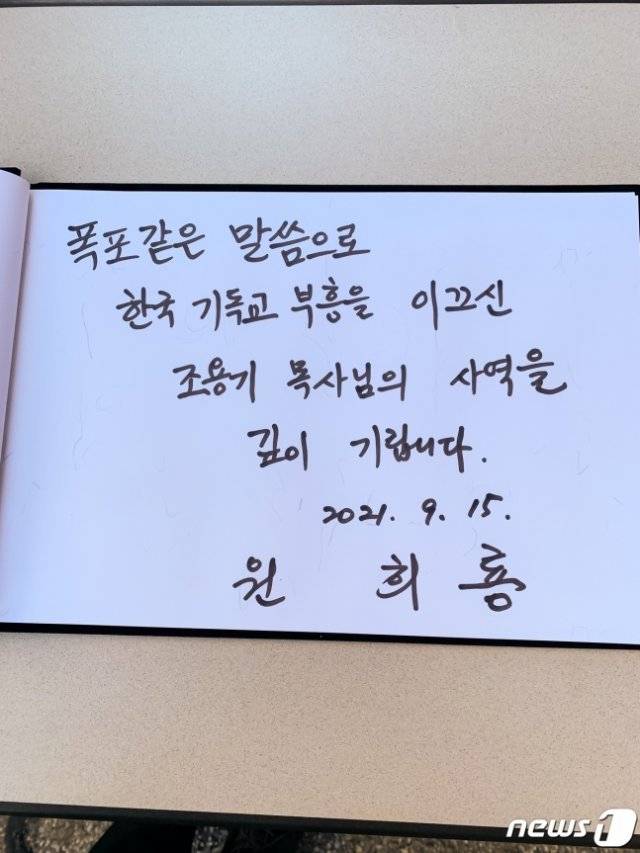 폭포같은 말씀으로
한국 기독교 부흥을 이끄신
조용기 목사님의 사역을
깊이 기립니다.
2021. 9. 15.
원 희 룡
news1